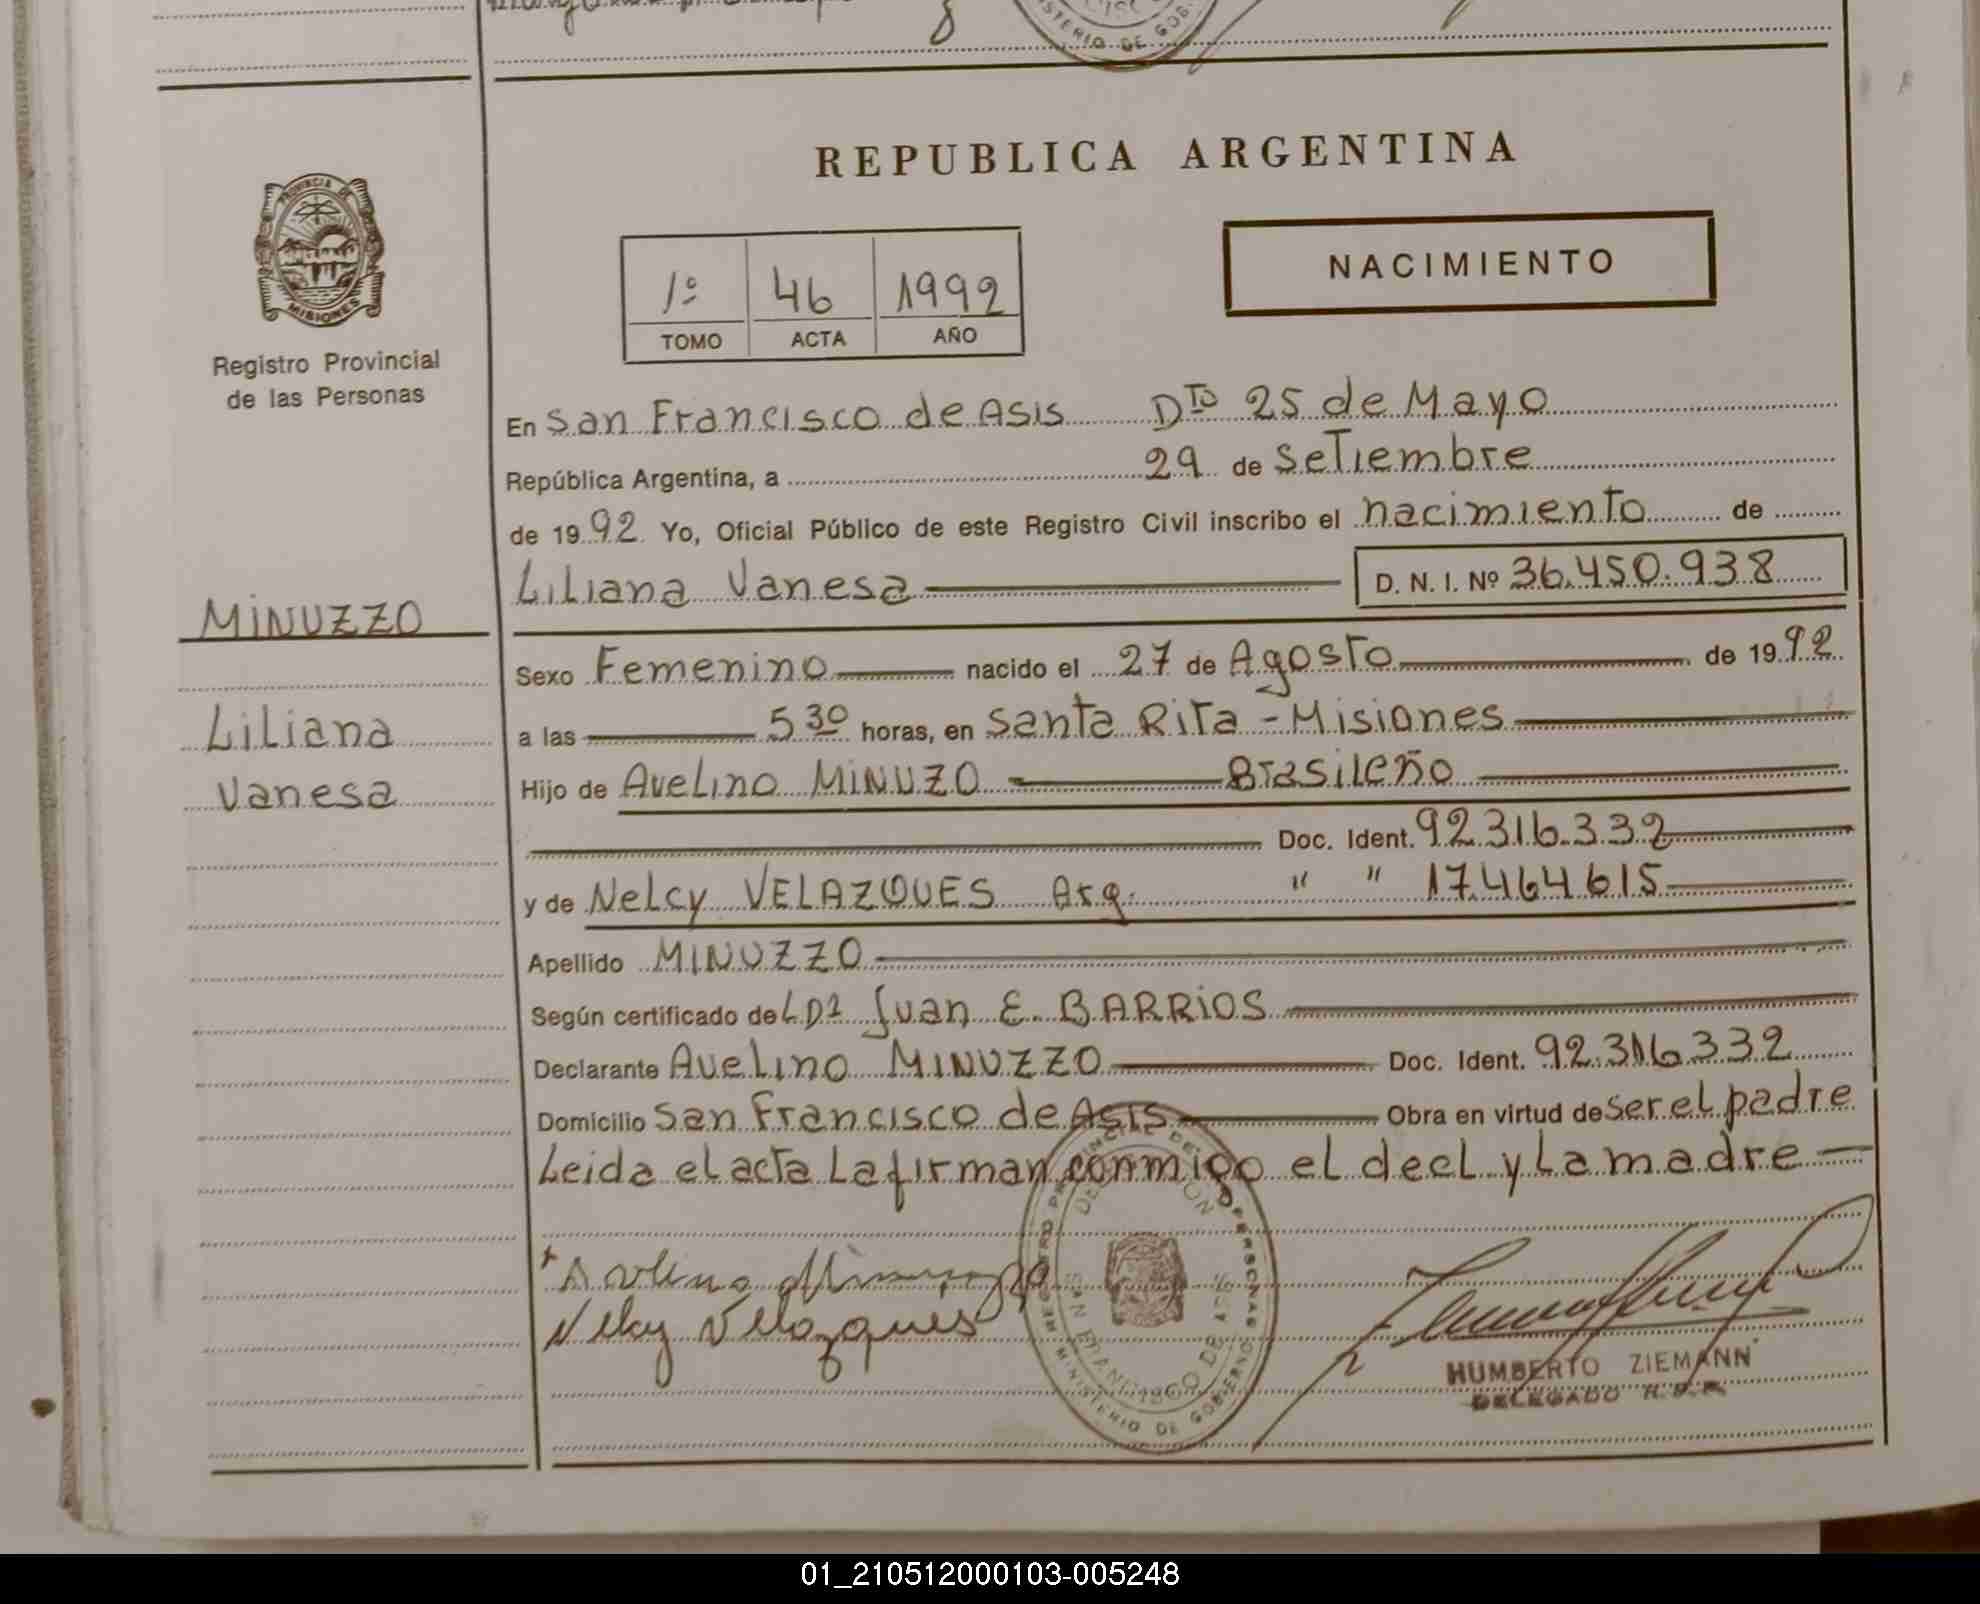 REPUBLICA ARGENTINA
PROVINCIA DE
MISIONES
Registro Provincial
de las Personas
NACIMIENTO
1º 46 1992
TOMO ACTA AÑO
En San Francisco de Asis Dto 25 de Mayo
República Argentina, a 29 de Setiembre
de 1992 Yo, Oficial Público de este Registro Civil inscribo el nacimiento de
Liliana Vanesa D. N. I. Nº 36.450.938
MINUZZO
Liliana
Vanesa
Sexo Femenino nacido el 27 de Agosto de 1992
a las 5 30 horas, en Santa Rita - Misiones
Hijo de Avelino MINUZO Brasileño
Doc. Ident. 92.316.332
y de Nelcy VELAZQUES Arg. " " 17.464.615
Apellido MINUZZO
Según certificado de Juan E. BARRIOS
Declarante Avelino MINUZZO Doc. Ident. 92.316.332
Domicilio San Francisco de Asis Obra en virtud de ser el padre
Leida el acta La firman conmigo el decl y La madre
Nelcy Velazques
REGISTRO PROVINCIAL DE LAS PERSONAS
DELEGACION
SAN FRANCISCO DE ASIS
MINISTERIO DE GOBIERNO
HUMBERTO ZIEMANN
DELEGADO R.P.P.
01_210512000103-005248